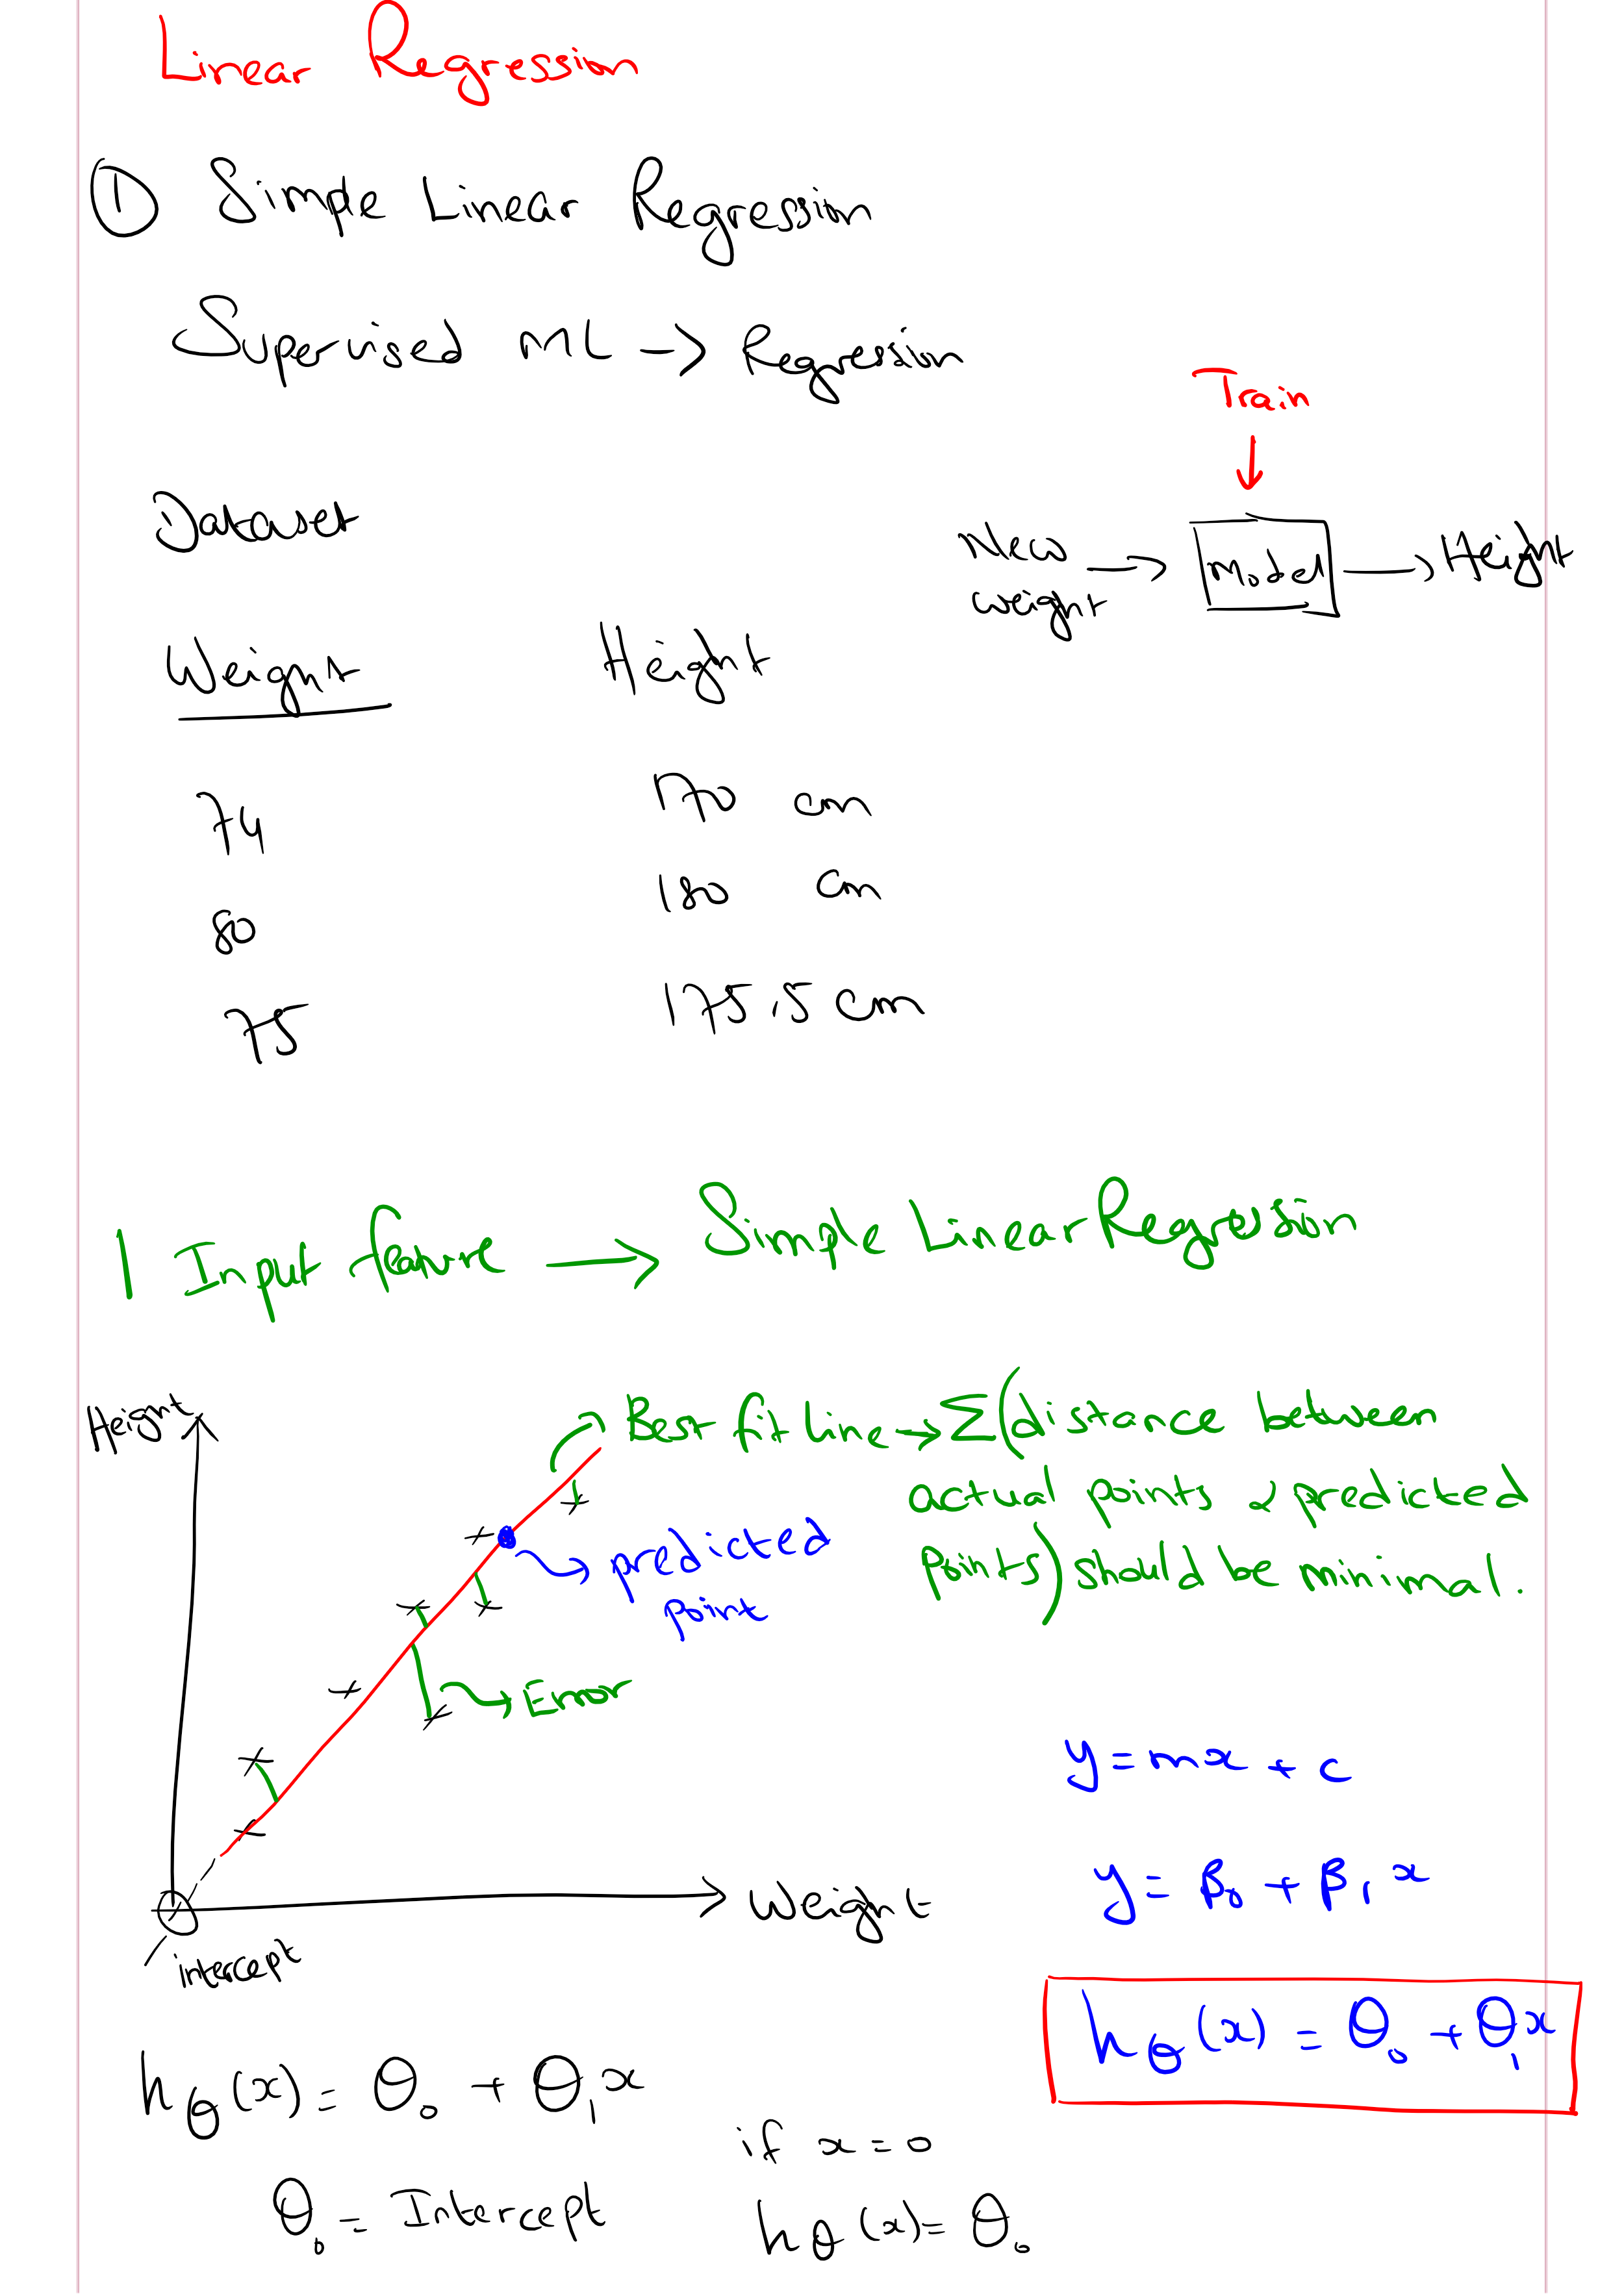 Linear Regression
① Simple Linear Regression
Supervised ML → Regression
Train
↓
Dataset
New weight → Model → Height
Weight Height
74 170 cm
80 180 cm
75 175.5 cm
1 Input feature → Simple Linear Regression
Height
Best fit line → Σ(distance between
actual points & predicted
points) should be minimal.
predicted
point
Error
y = mx + c
y = β₀ + β₁ x
Weight
intercept
hθ(x) = θ₀ + θ₁x
hθ(x) = θ₀ + θ₁x
if x = 0
θ₀ = Intercept hθ(x) = θ₀